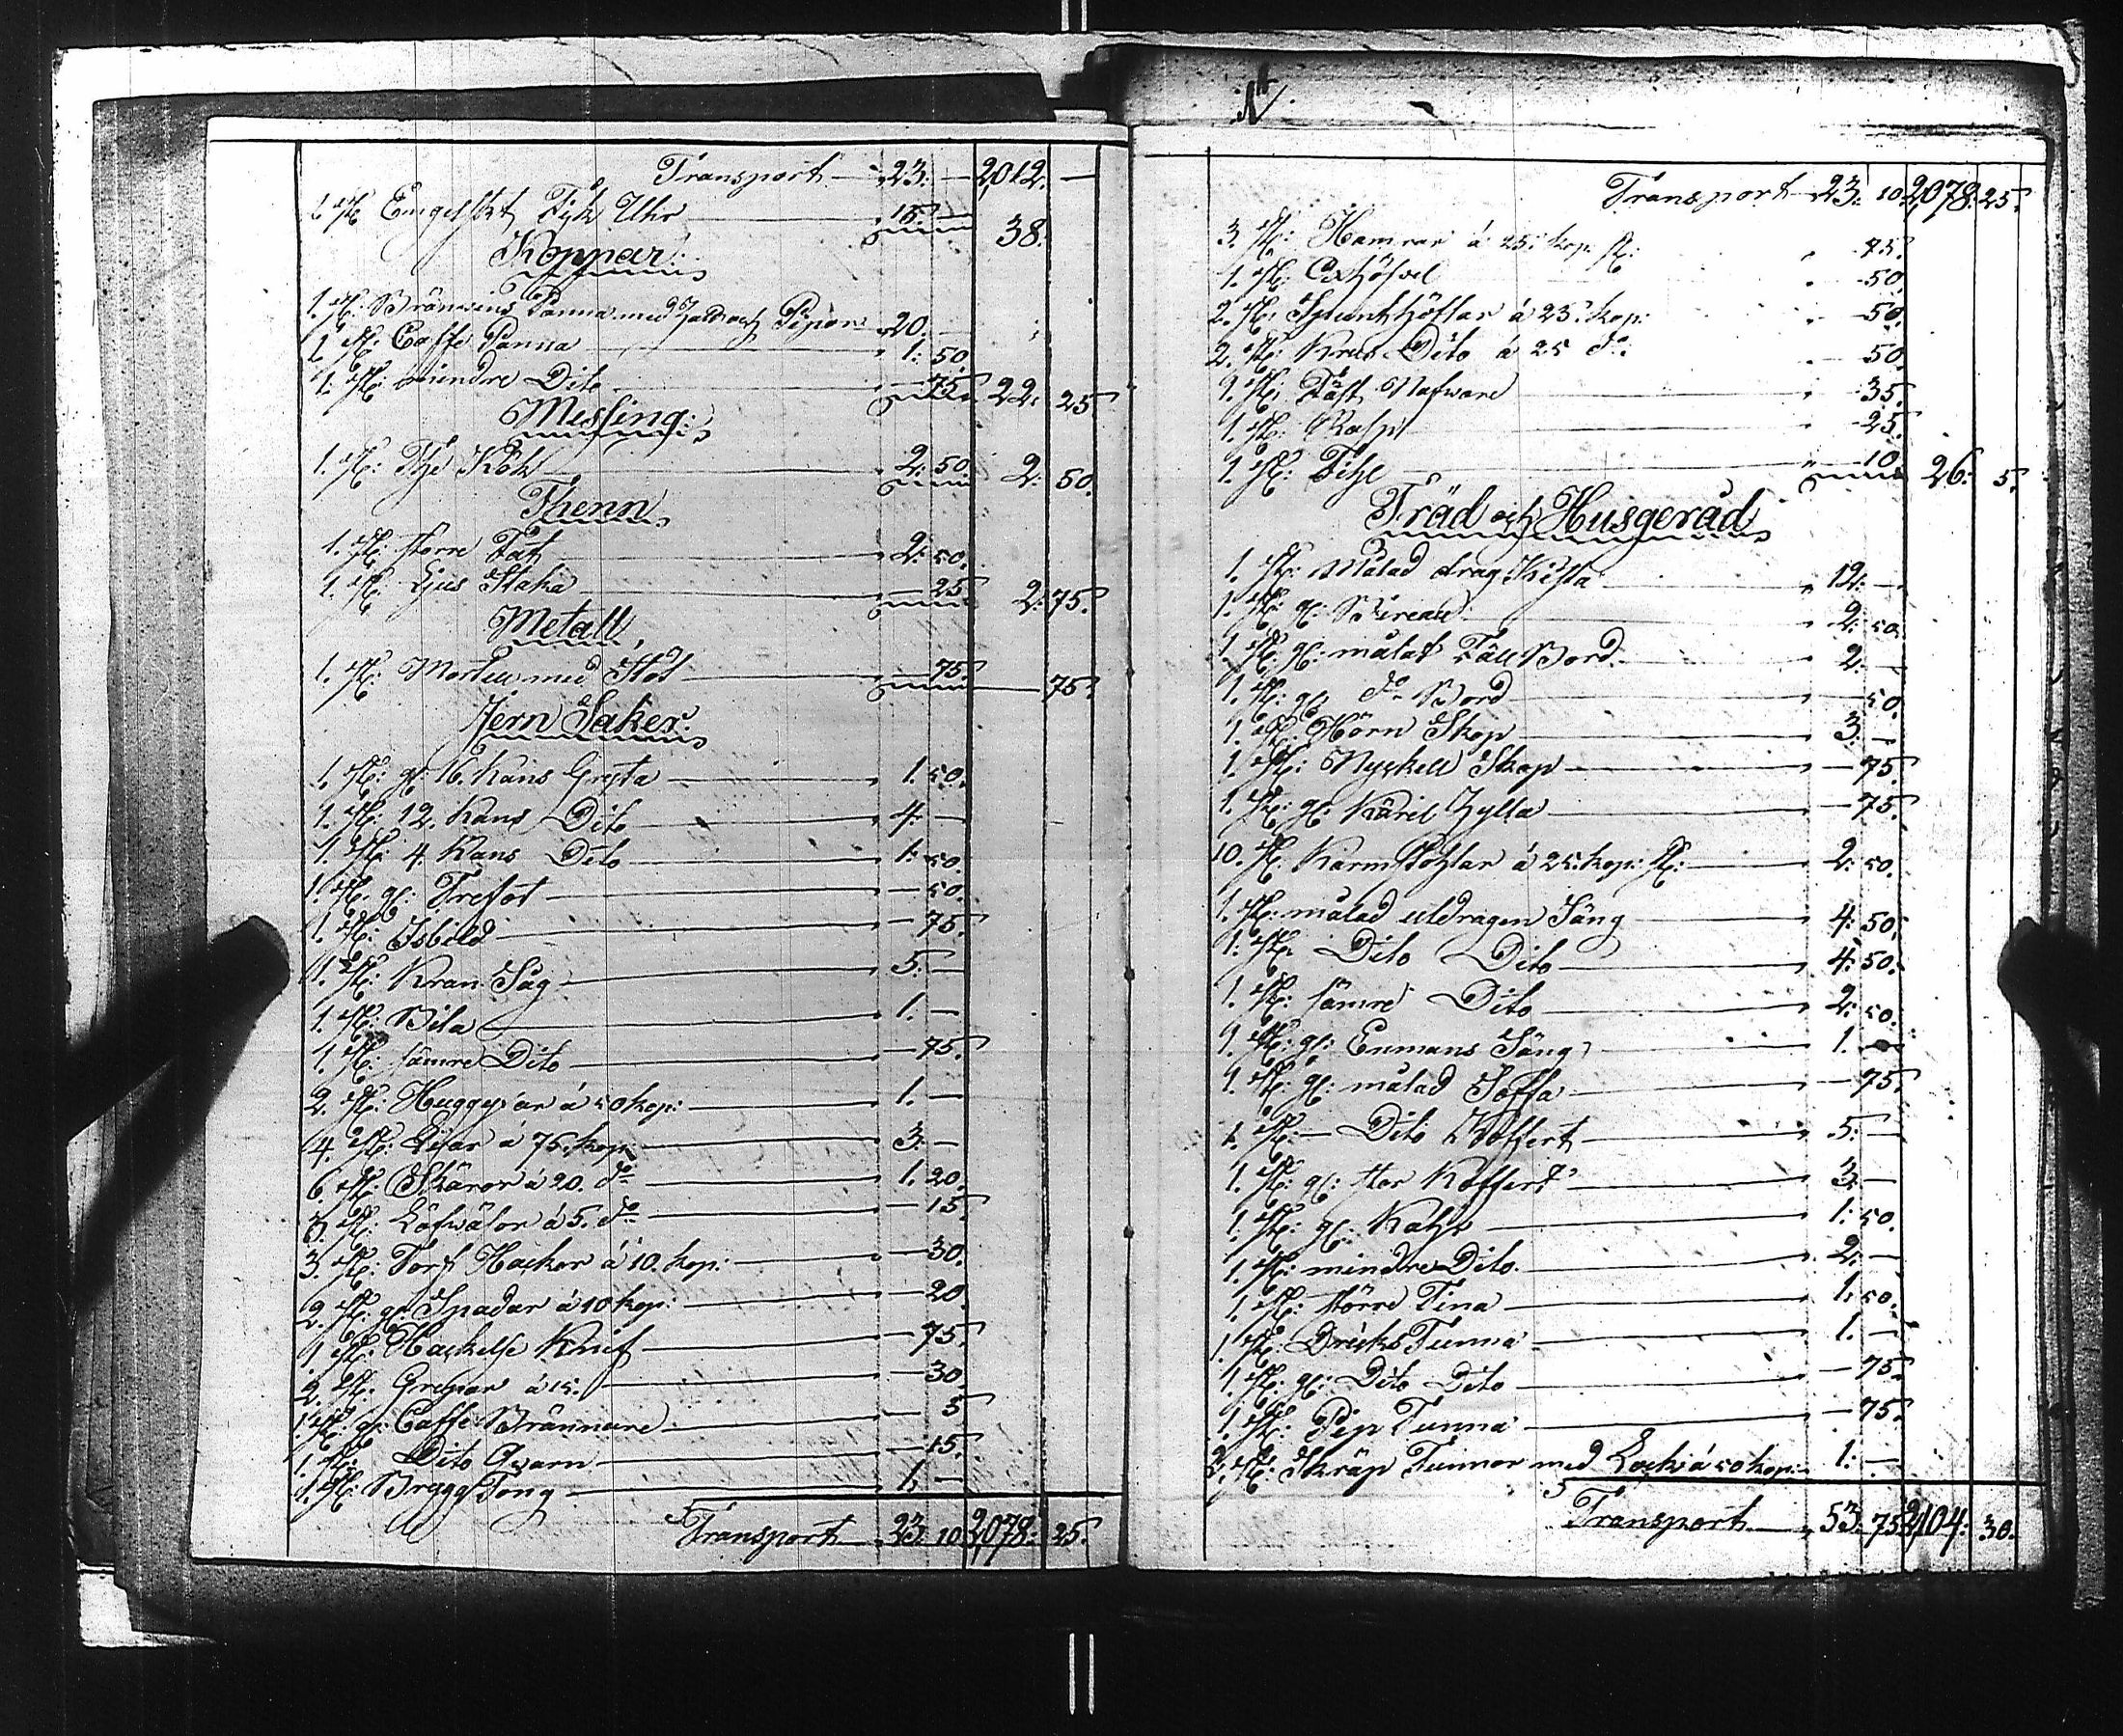 Transport 23. — 2,012. —
1 st. Engelskt Fik Uhr 15. — 38.
Koppar.
1. st: Bränvins Panna med och Pipor 20. —
1 st: Caffe Panna 1: 50.
1. st: mindre Dito — 75. 22. 25.
Messing:
1. st: The Kök 2: 50. 2: 50.
Thenn
1. st: större Fat 2: 50.
1. st: Ljus Staka — 25 2: 75.
Metall
1. st: Mortell med Stöt — 75. — 75.
Jern Saker:
1. st: gl: 16. Kans Gryta 1. 50.
1. st: 12. Kans Dito 4. —
1. st: 4. Kans Dito 1. 50.
1. st. gl: Trefot — 50.
1. st: Isbild — 75.
1. st: Kran Såg 5. —
1. st: Bila 1. —
1. st: sämre Dito — 75.
2. st: Huggyxar á 50 kop: 1. —
4. st: Liar á 75. kop: 3. —
6. st: Skäror á 20. do 1. 20.
3. st: Löfwälor á 5. do — 15.
3. st: Torf Hackor á 10. kop: — 30.
2. st: gl: Spadar á 10 kop: — 20.
1 st: Hackelse Knif — 75.
2. st: Grepar á 15. — 30.
1. st: gl: Caffe Brännare — 5
1. st: Dito Qvarn — 15.
1. st: Brygg Tong 1. —
Transport 23. 10. 2,078: 25.
Transport 23: 10. 2,078: 25.
3. st: Hamrar á 25: kop: st: — 75.
1. st: — 50.
2. st: Spunthöflar á 25. kop: — 50.
2. st: Krus Dito á 25 do: — 50.
1. st: Nafware — 35.
1. st: Rasp — 25.
1. st: — 10. 26: 5.
Träd och Husgeråd
1. st: Målad drag Kista 12. —
1. st: gl: Bireau 2: 50.
1. st: gl: målat Fäll Bord 2. —
1. st: gl: do Bord — 50.
1. st: Hörn Skop 3. —
1. st: Nyckell Skap — 75.
1. st: gl: Käril Hylla — 75.
10. st: Karmstohlar á 25. kop: st: 2. 50.
1. st: målad utdragen Säng 4: 50.
1. st: Dito Dito 4: 50.
1. st: sämre Dito 2: 50.
1. st: gl: Enmans Säng 1. —
1. st: gl: målad Soffa — 75.
1. st: — Dito Koffert 5. —
1. st: gl: stor Koffert 3 —
1. st: gl: 1: 50.
1. st: mindre Dito. 2. —
1. st: större Tina 1. 50.
1. st: Dricks Tunna 1. —
1. st: gl: Dito Dito — 75.
1. st: Pip Tunna — 75.
2. st: Skräp Tunnor med Lock á 50 kop: 1: —
Transport 53. 75. 2,104. 30.